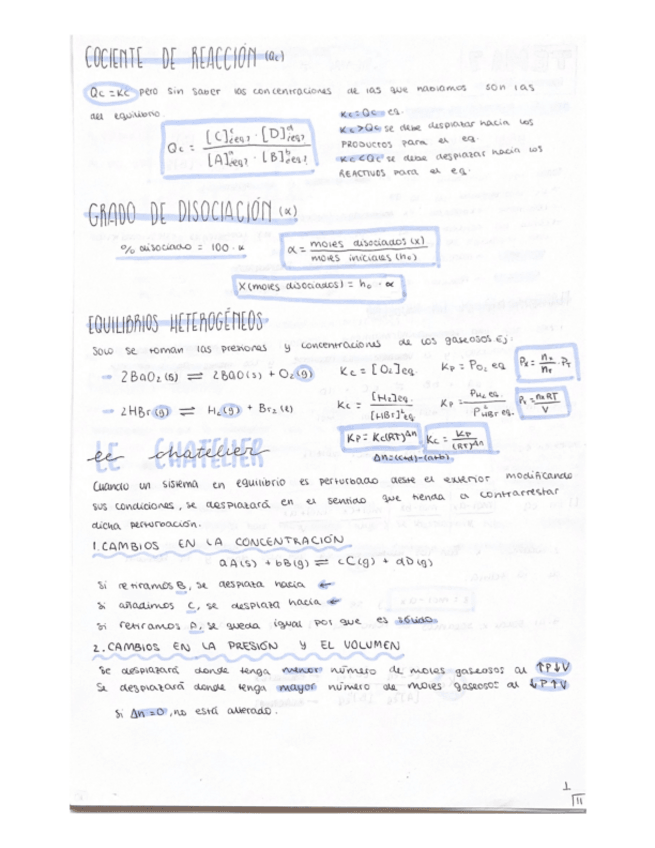 COCIENTE DE REACCIÓN (Qc)
Qc = Kc pero sin saber las concentraciones de las que hablamos son las
del equilibrio.
Kc = Qc eq.
Kc > Qc se debe desplazar hacia los
PRODUCTOS para el eq.
Kc < Qc se debe desplazar hacia los
REACTIVOS para el eq.
Qc = [C]^c eq? · [D]^d eq? / [A]^a eq? · [B]^b eq?
GRADO DE DISOCIACIÓN (α)
% disociado = 100 · α
α = moles disociados (x) / moles iniciales (n₀)
X (moles disociados) = n₀ · α
EQUILIBRIOS HETEROGÉNEOS
Solo se toman las presiones y concentraciones de los gaseosos Ej:
→ 2BaO₂(s) ⇌ 2BaO(s) + O₂(g) Kc = [O₂]eq. Kp = Po₂ eq
→ 2HBr(g) ⇌ H₂(g) + Br₂(l) Kc = [H₂]eq. / [HBr]²eq. Kp = PH₂ eq. / P²HBr eq.
Kp = Kc(RT)^Δn Kc = Kp / (RT)^Δn
Δn = (c+d) - (a+b)
Le CHATELIER
Cuando un sistema en equilibrio es perturbado desde el exterior modificando
sus condiciones, se desplazará en el sentido que tienda a contrarrestar
dicha perturbación.
1. CAMBIOS EN LA CONCENTRACIÓN
aA(s) + bB(g) ⇌ cC(g) + dD(g)
Si retiramos B, se desplaza hacia ←
Si añadimos C, se desplaza hacia ←
Si retiramos A, se queda igual por que es sólido
2. CAMBIOS EN LA PRESIÓN Y EL VOLUMEN
Se desplazará donde tenga menor número de moles gaseosos al ↑P↓V
Se desplazará donde tenga mayor número de moles gaseosos al ↓P↑V
Si Δn = 0, no está alterado.
1
11